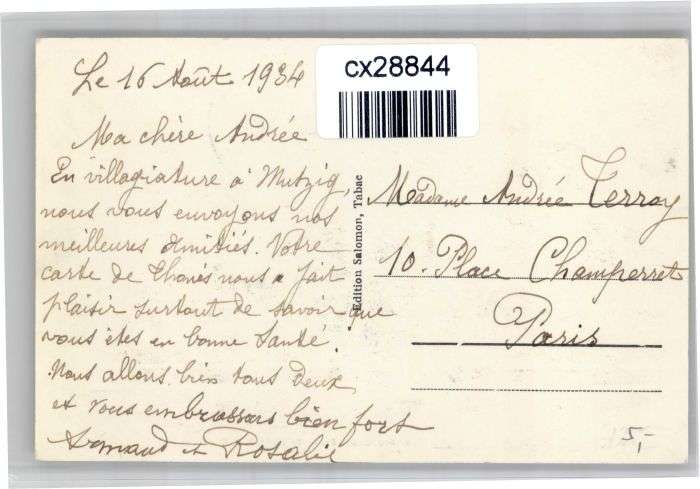 Le 16 Août 1934
cx28844
Ma chère Andrée
En villagiature à Mutzig,
nous vous envoyons nos
meilleures amitiés. Votre
carte de Thones nous a fait
plaisir surtout de savoir que
vous êtes en bonne santé.
Nous allons bien tous deux
et vous embrassons bien fort
Armand et Rosalie
Edition Salomon, Tabac
Madame Andrée Terray
10. Place Champerret
Paris
5,-